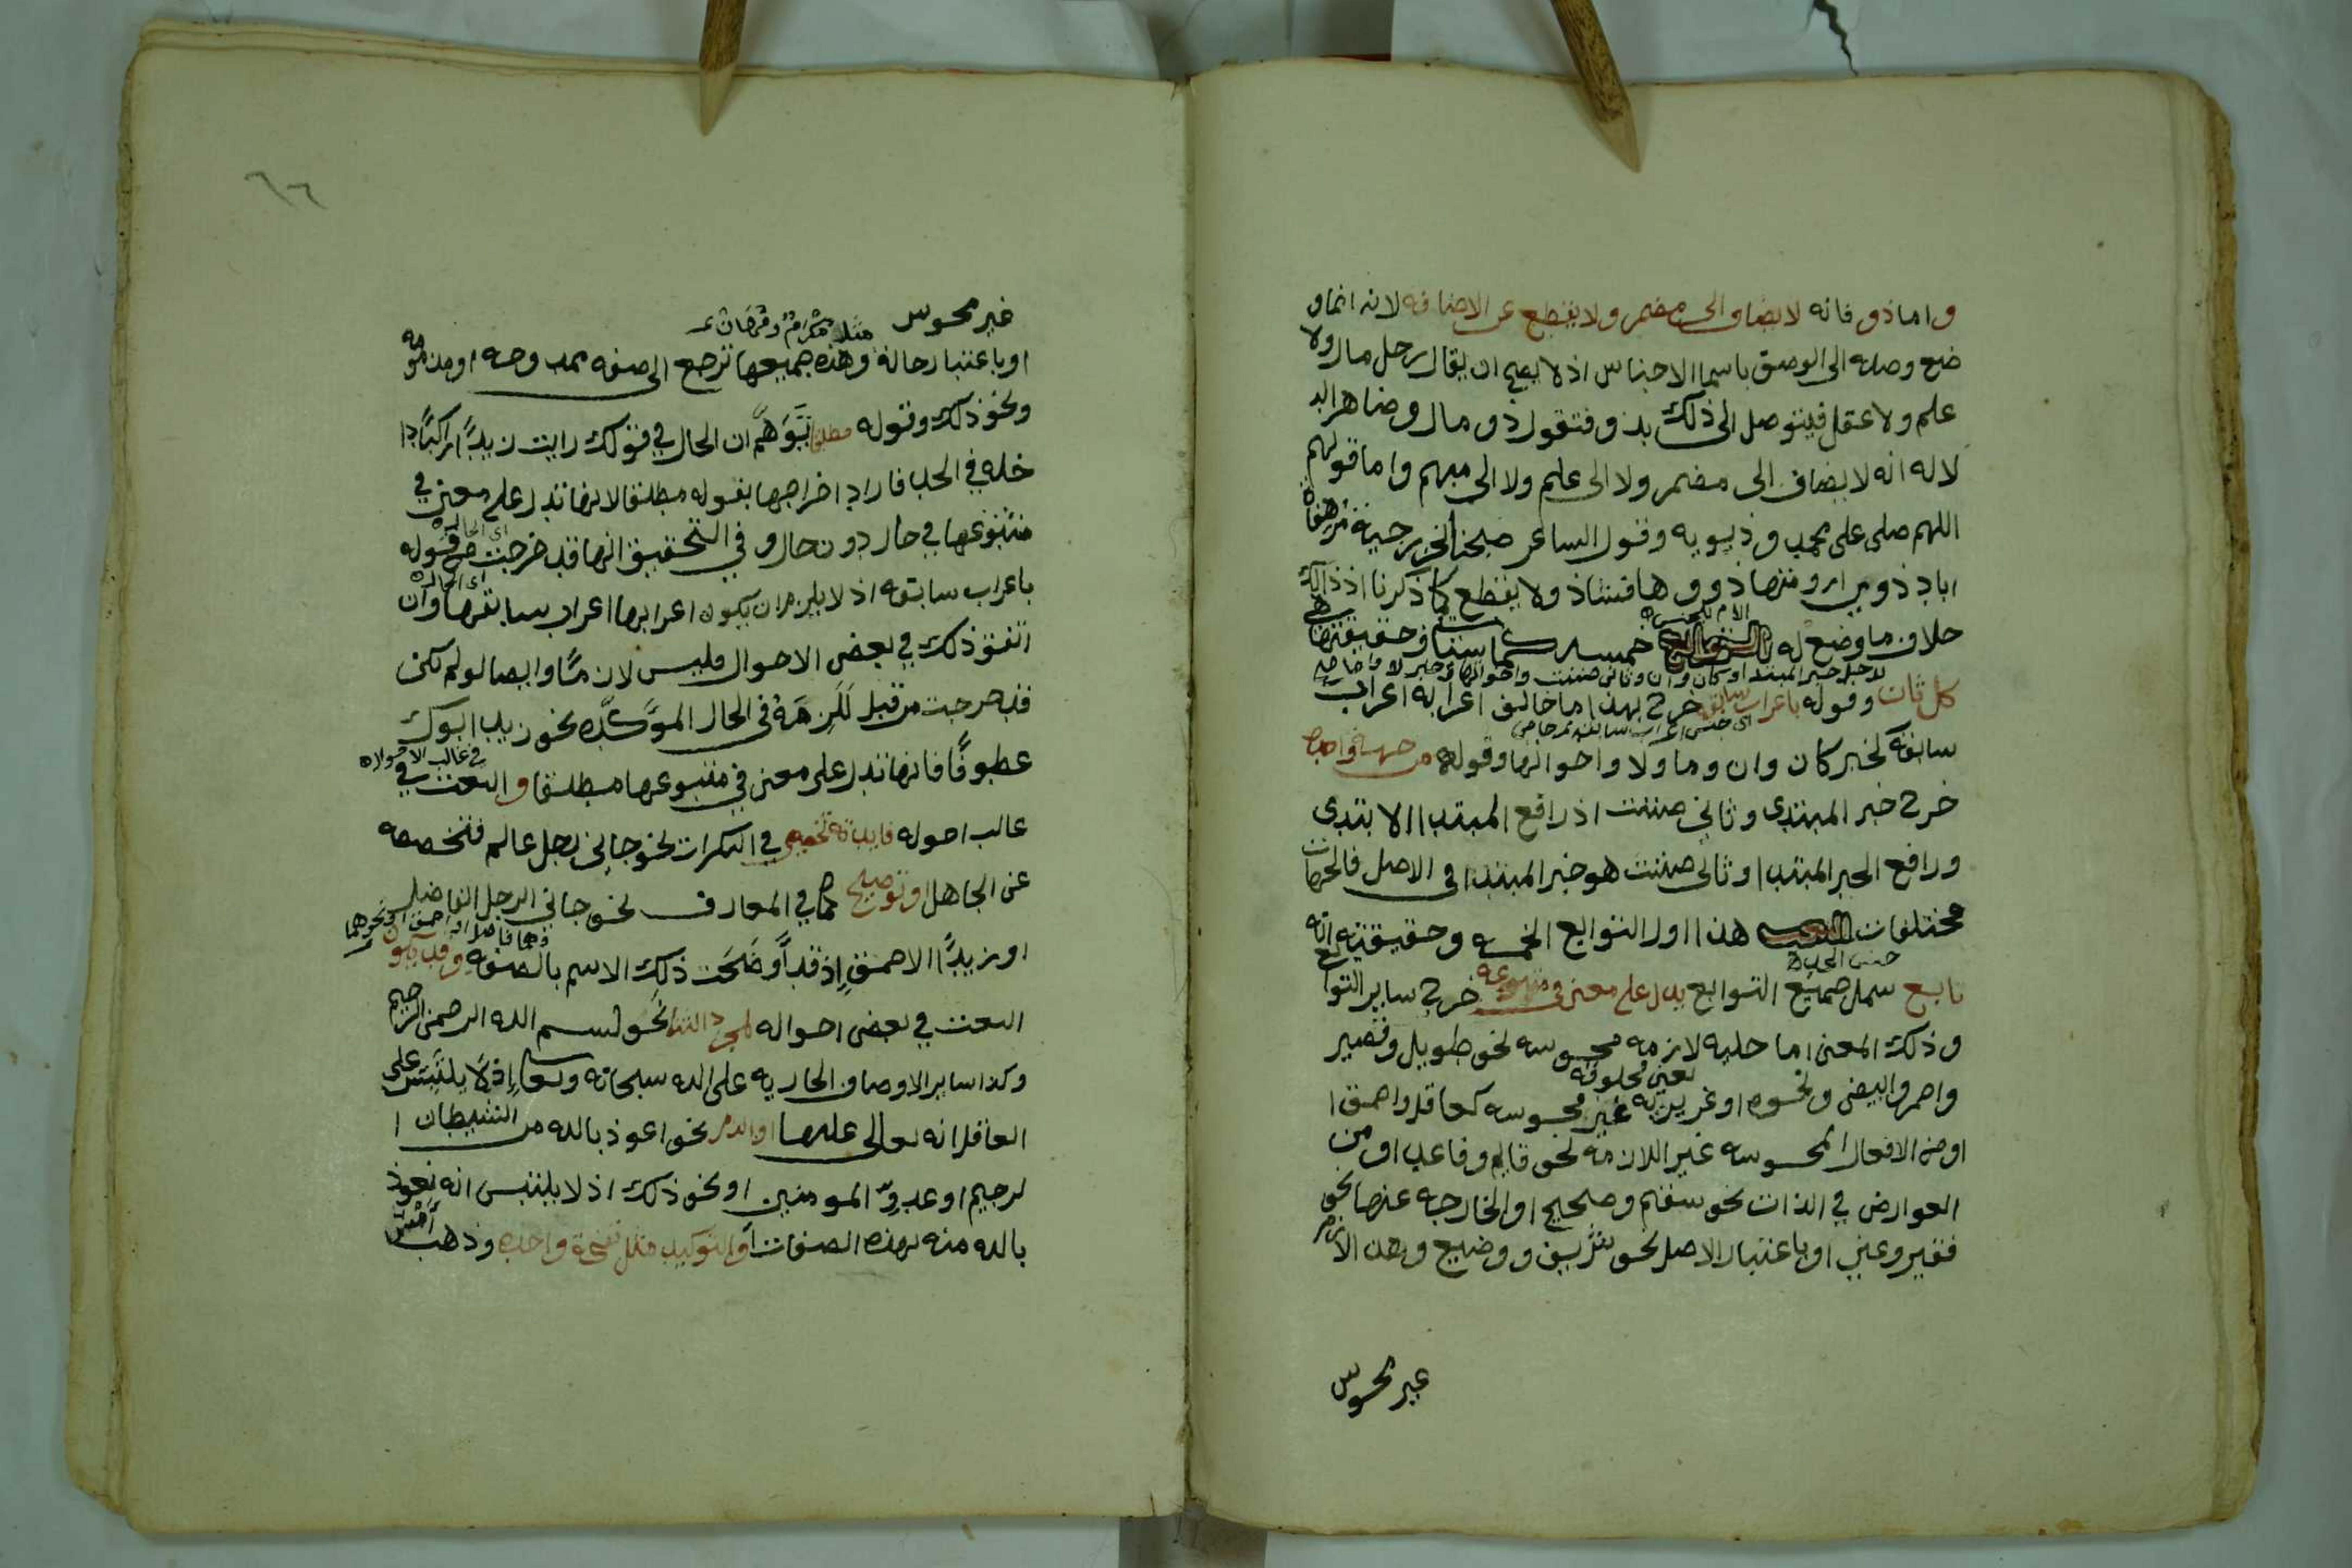 واما ذو فانه لا يضاف الى مضمر ولا يقطع عن الاضافه لانه انما و
ضع وصله الى الوصف باسما الاجناس اذ لا يصح ان يقال رجل مال ولا
علم ولا عقل فيتوصل الى ذلك بذو فتقول ذو مال وضاهر الد
لاله انه لا يضاف الى مضمر ولا الى علم ولا الى مبهم واما قولهم
اللهم صلى على محمد وذويه وقول الشاعر صبحنا الخزرجية مرهفاة
اباد ذوي ارومتها ذووها فشاذ ولا يقطع كما ذكرنا اذ ذالك
خلاف ما وضع له
كل ثان وقوله باعراب سابقه خرج بهذا ما خالف اعرابه اعراب
سابقه كخبر كان وان وما ولا واخواتها وقوله من جهة واحدة
خرج خبر المبتدى وثاني ضننت اذ رافع المبتدا الابتدى
ورافع الخبر المبتدا وثاني ضننت هو خبر المبتدا في الاصل فالجهات
مختلفات هذا اول التوابع الخمسه وحقيقته انه
جنس الحد
تابع شمل جميع التوابع يدل على معنى في متبوعه خرج ساير التوا
وذلك المعنى اما حليه لازمه محسوسه نحو طويل وقصير
يعني مخلوقه
واحمر وابيض ونحوه او غريزيه غير محسوسه كعاقل واحمق ا
او من الافعال المحسوسه غير اللازمه نحو قايم وقاعد او من
العوارض في الذات نحو سقيم وصحيح او الخارجه عنها نحو
فقير وغني او باعتبار الاصل نحو شريف ووضيع وهذا الازم
غير محسوس
٦٦
غير محسوس
او باعتبار حاله وهذه جميعها ترجع الى صفه ممدوحه او مذمومه
ونحو ذلك وقوله مطلقا توهم ان الحال في قولك رايت زيدا راكبا دا
خله في الحد فاراد اخراجها بقوله مطلقا لانها تدل على معنى في
متبوعها في حال دون حال وفي التحقيق انها قد خرجت من قوله
باعراب سابقه اذ لا يلزم ان يكون اعرابها اعراب سابقها وان
اتفق ذلك في بعض الاحوال فليس لازما وايضا لو لم تكن
قد خرجت من قبل للزمه في الحال المؤكده نحو زيد ابوك
عطوفا فانها تدل على معنى في متبوعها مطلقا والنعت في
غالب احوله فايدته تخصيص في النكرات نحو جاني رجل عالم فتخصصه
عن الجاهل او توضيح كما في المعارف نحو جاني الرجل الفاضل
او زيدا الاحمق اذ قد اوضحت ذلك الاسم بالصفه وقد يكون
النعت في بعض احواله لمجرد الثنا نحو بسم الله الرحمن الرحيم
وكذا ساير الاوصاف الجاريه على الله سبحانه وتعالى اذ لا يلتبس على
العاقل انه تعالى عليها او الذم نحو اعوذ بالله من الشيطان ا
لرجيم او عدو المومنين او نحو ذلك اذ لا يلتبس انه نعوذ
بالله منه بهذه الصفات او التوكيد مثل نفخة واحده وذهب امس